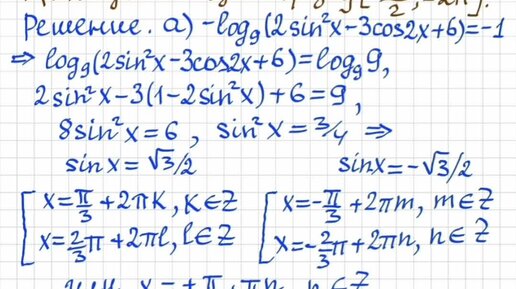 Решение. а) -log₉(2sin²x-3cos2x+6)=-1
⇒ log₉(2sin²x-3cos2x+6)=log₉9,
2sin²x-3(1-2sin²x)+6=9,
8sin²x=6, sin²x=3/4 ⇒
sinx=√3/2 sinx=-√3/2
[x=π/3+2πk, k∈Z [x=-π/3+2πm, m∈Z
x=2/3π+2πl, l∈Z x=-2/3π+2πn, n∈Z